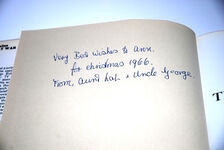 Very Best wishes to Ann.
for christmas 1966.
From, Aunt & Uncle George.
T